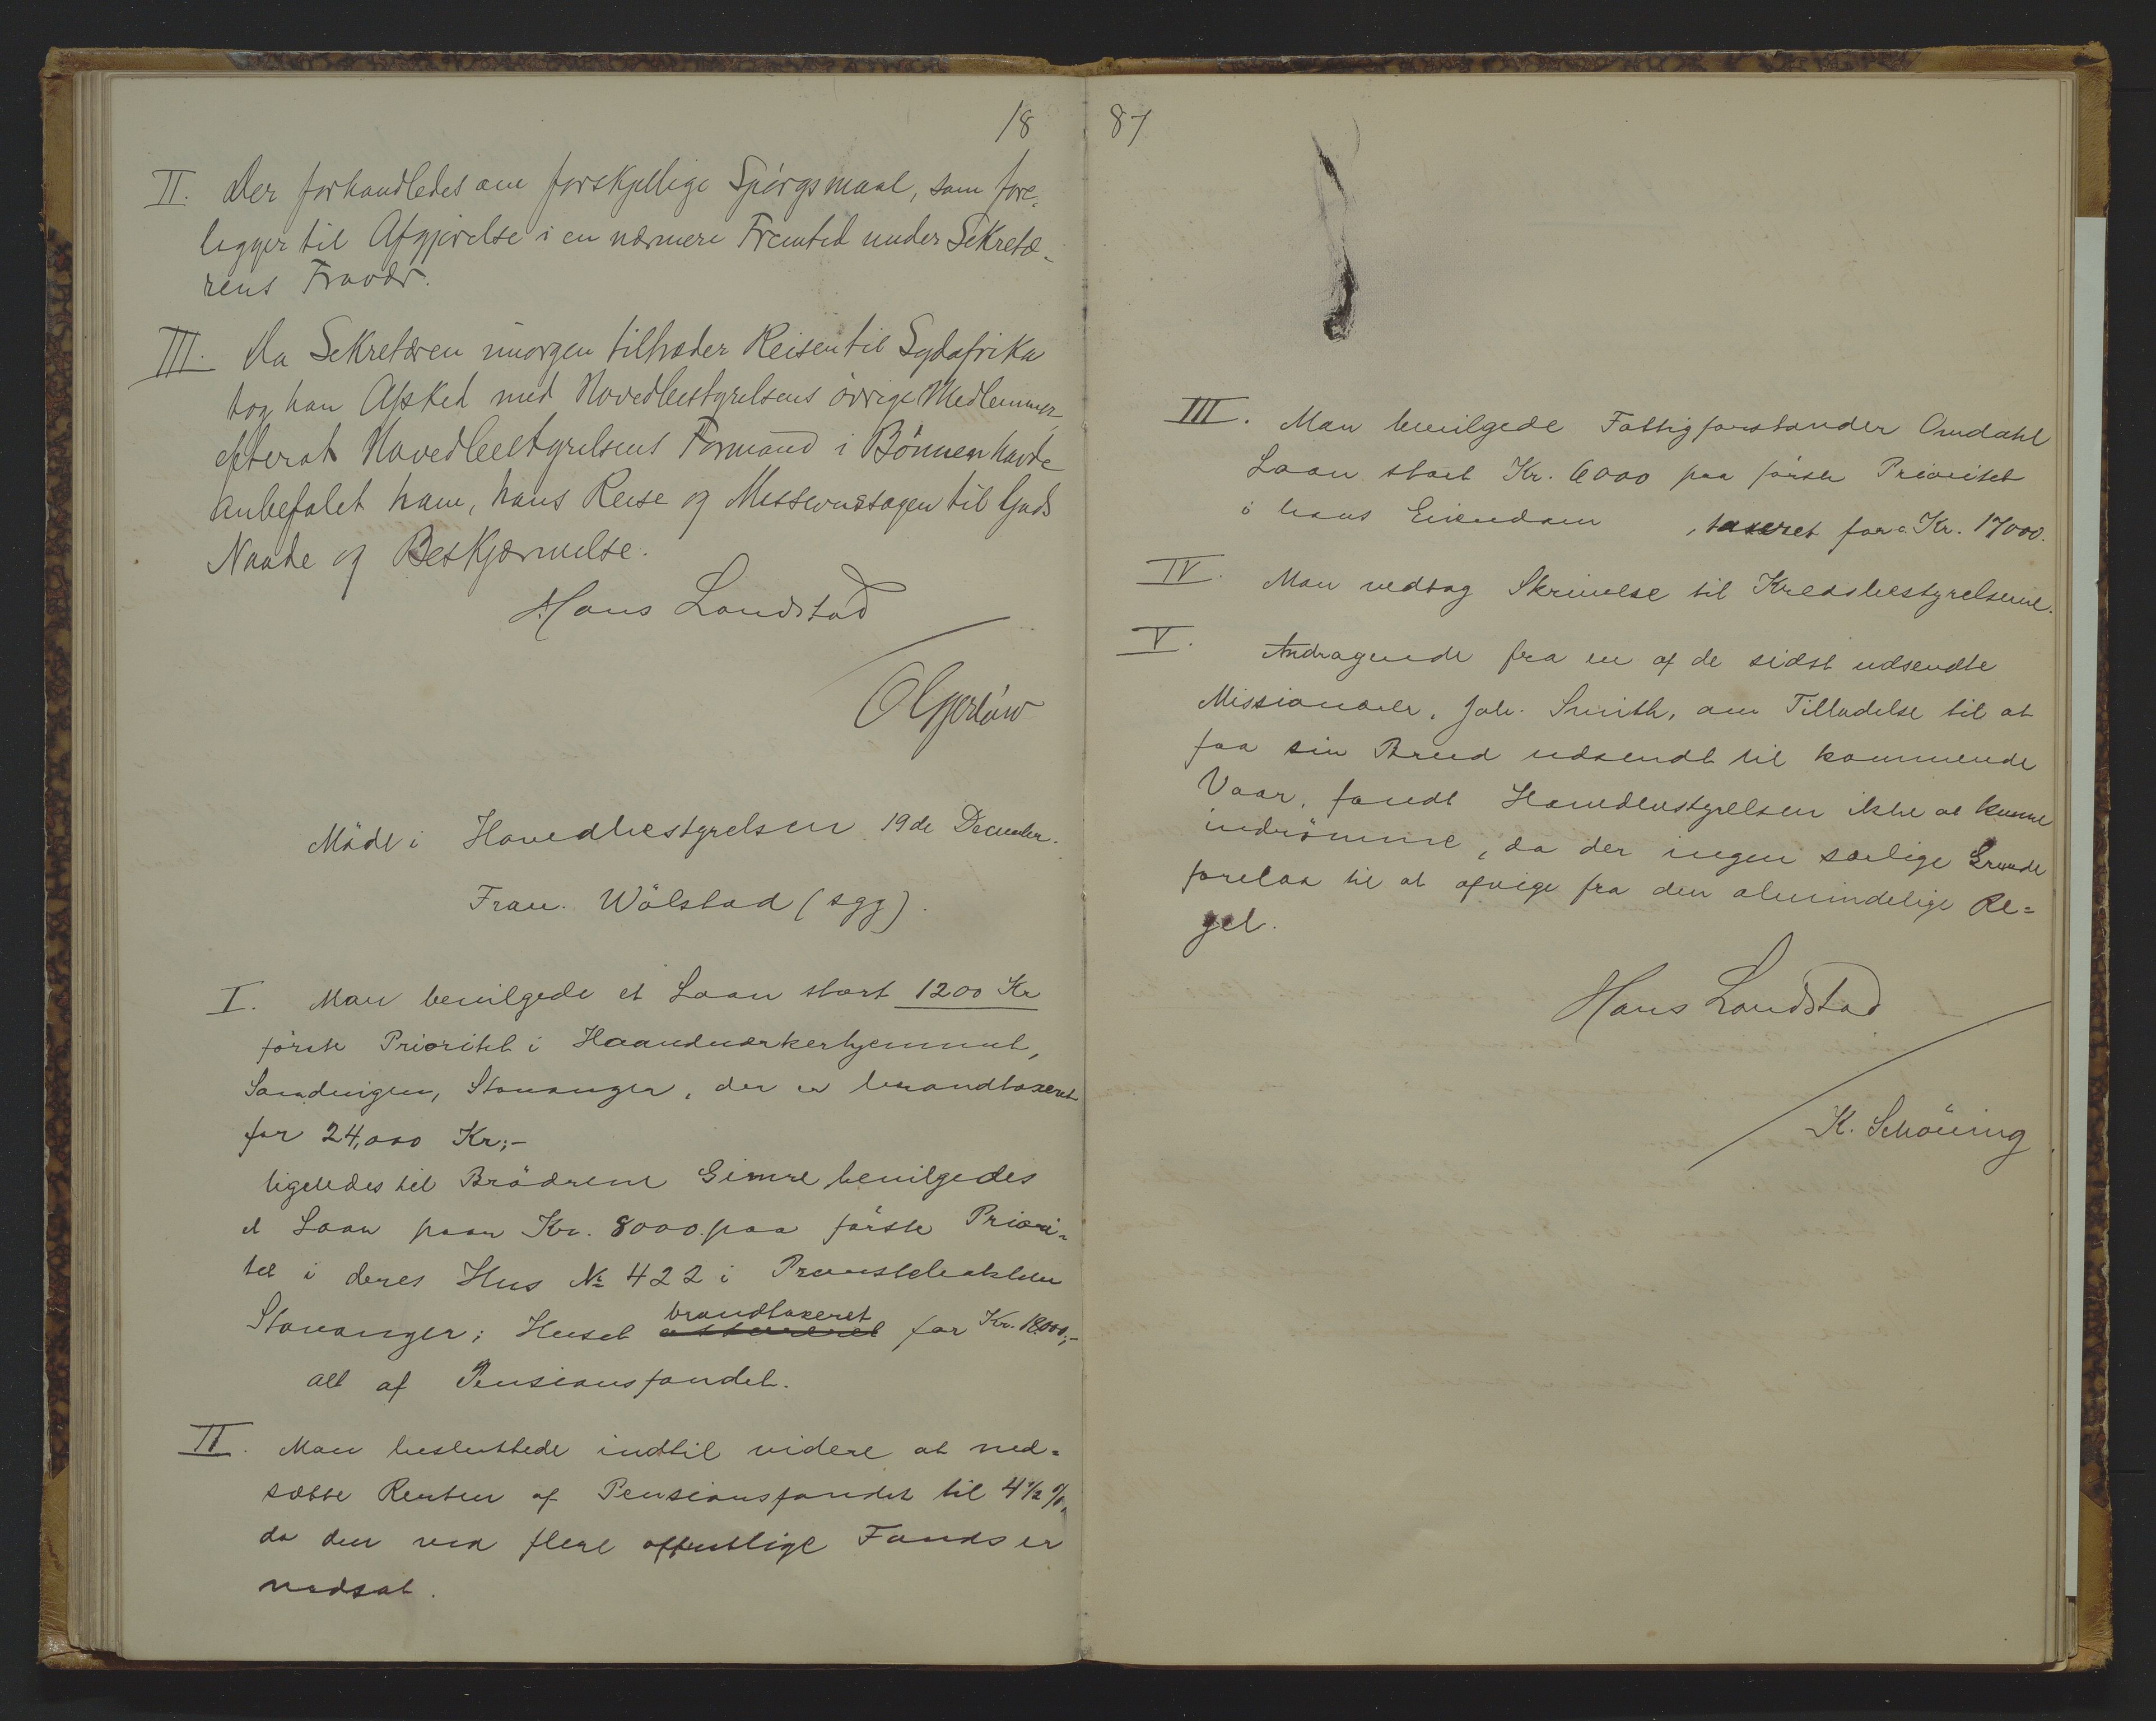 18
II. Der forhandledes om forskjellige Spörgsmaal, som fore-
ligger til Afgjörelse i en nærmere Fremtid under Sekretæ-
rens Fravær.
III. Da Sekretæren imorgen tiltræder Reisen til Sydafrika
tog han Afsked med Hovedbestyrelsens övrige Medlemmer
efterat Hovedbestyrelsens Formand i Bönnen havde
anbefalet ham, hans Reise og Missionssagen til Guds
Naade og Beskjærmelse.
Hans Landstad
O Gjerlöw
Möde i Hovedbestyrelsen 19de December.
Frav. Wölstad (sgg).
I. Man bevilgede et Laan stort 1200 Kr
förste Prioritet i Haandværkerhjemmet,
Sandvigen, Stavanger, der er brandtaxeret
for 24,000 Kr;-
ligeledes til Brödrene Gimre bevilgedes
et Laan paa Kr. 8000. paa förste Priori-
tet i deres Hus № 422 i
Stavanger; Huset assureret brandtaxeret for Kr. 18000,-
alt af Pensionsfondet.
II. Man besluttede indtil videre at ned=
sætte Renten af Pensionsfondet til 4½ %,
da den ved flere offentlige Fonds er
nedsat.
87
III. Man bevilgede Fattigforstander Omdahl
Laan stort Kr. 6000 paa förste Prioritet
i hans Eiendom , taxeret for Kr. 17000.
IV. Man vedtog Skrivelse til Kredsbestyrelserne.
V. Andragende fra en af de sidst udsendte
Missionærer, Joh. Smith, om Tilladelse til at
faa sin Brud udsendt til kommende
Vaar, fandt Hovedbestyrelsen ikke at kunne
indrömme, da der ingen særlige Grunde
forelaa til at afvige fra den almindelige Re=
gel.
Hans Landstad
K. Schöning